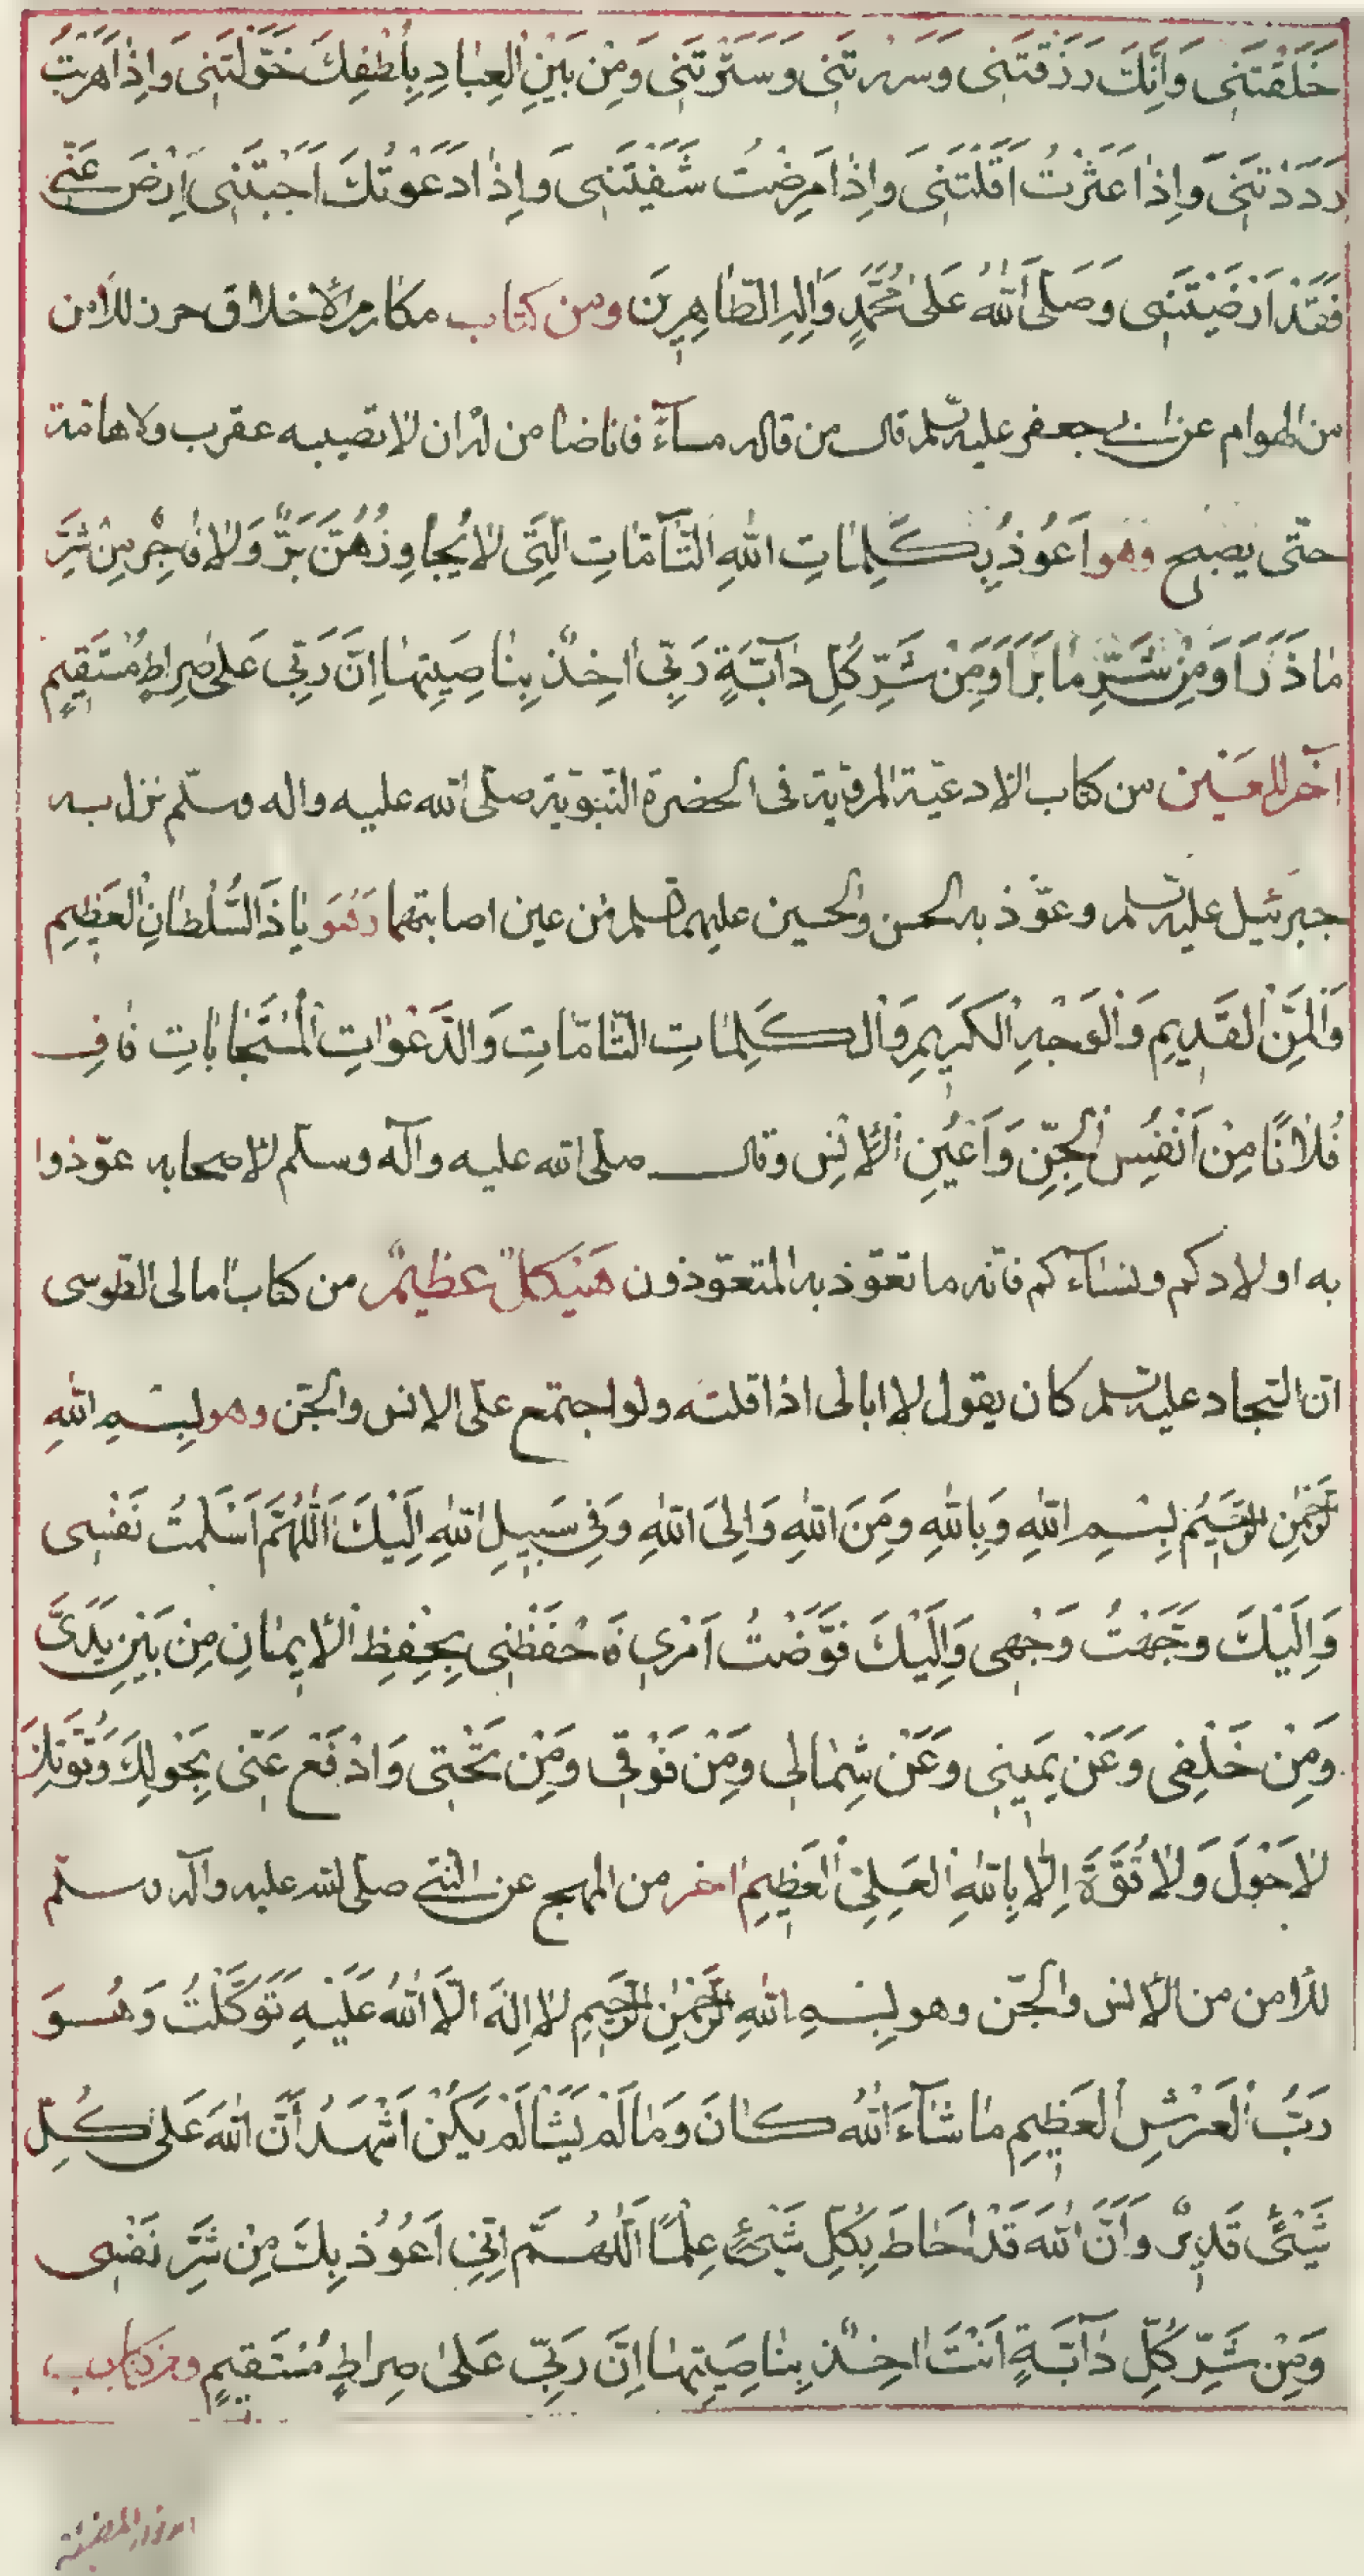 خَلَقْتَنِى وَاَنَّكَ رَزَقْتَنِى وَسَرَرْتَنِى وَسَتَرْتَنِى وَمِنْ بَيْنِ الْعِبَادِ بِلُطْفِكَ خَوَّلْتَنِى وَاِذَا هَرَبْتُ
رَدَدْتَنِى وَاِذَا عَثَرْتُ اَقَلْتَنِى وَاِذَا مَرِضْتُ شَفَيْتَنِى وَاِذَا دَعَوْتُكَ اَجَبْتَنِى اِرْضَ عَنِّى
فَقَدْ اَرْضَيْتَنِى وَصَلَّى اللّٰهُ عَلٰى مُحَمَّدٍ وَاٰلِهِ الطَّاهِرِينَ ومن كتاب مكارم الاخلاق حرز للامن
من الهوام عن ابى جعفر عليه السلم قال من قاله مساءً فاناضامن له ان لا تصيبه عقرب ولا هامّة
حتّى يصبح وهو اَعُوذُ بِكَلِمَاتِ اللّٰهِ التَّآمَّاتِ الَّتِى لَا يُجَاوِزُهُنَّ بَرٌّ وَلَا فَاجِرٌ مِنْ شَرِّ
مَا ذَرَاَ وَمِنْ شَرِّ مَا بَرَاَ وَمِنْ شَرِّ كُلِّ دَآبَّةٍ رَبِّى اٰخِذٌ بِنَاصِيَتِهَا اِنَّ رَبِّى عَلٰى صِرَاطٍ مُسْتَقِيمٍ
آخر للعين من كتاب الادعيّة المرويّة فى الحضرة النّبويّة صلّى اللّه عليه واله وسلّم نزل به
جبرئيل عليه السلم وعوّذ به الحسن والحسين عليهما السلم من عين اصابتهما وَهُوَ يَا ذَا السُّلْطَانِ الْعَظِيمِ
وَالْمَنِّ الْقَدِيمِ وَالْوَجْهِ الْكَرِيمِ وَالْكَلِمَاتِ التَّامَّاتِ وَالدَّعَوَاتِ الْمُسْتَجَابَاتِ عَافِ
فُلَانًا مِنْ اَنْفُسِ الْجِنِّ وَاَعْيُنِ الْاِنْسِ وقال صلّى اللّه عليه وآله وسلّم لاصحابه عوّذوا
به اولادكم ونساءكم فانّه ما تعوّذ به المتعوّذون هَيْكَلٌ عَظِيمٌ من كتاب امالى الطوسى
انّ السّجاد عليه السلم كان يقول لا ابالى اذا قلته ولو اجتمع علىّ الانس والجنّ وهو بِسْمِ اللّٰهِ
الرَّحْمٰنِ الرَّحِيمِ بِسْمِ اللّٰهِ وَبِاللّٰهِ وَمِنَ اللّٰهِ وَاِلَى اللّٰهِ وَفِى سَبِيلِ اللّٰهِ اِلَيْكَ اَللّٰهُمَّ اَسْلَمْتُ نَفْسِى
وَاِلَيْكَ وَجَّهْتُ وَجْهِى وَاِلَيْكَ فَوَّضْتُ اَمْرِى فَاحْفَظْنِى بِحِفْظِ الْاِيمَانِ مِنْ بَيْنِ يَدَىَّ
وَمِنْ خَلْفِى وَعَنْ يَمِينِى وَعَنْ شِمَالِى وَمِنْ فَوْقِى وَمِنْ تَحْتِى وَادْفَعْ عَنِّى بِحَوْلِكَ وَقُوَّتِكَ
لَا حَوْلَ وَلَا قُوَّةَ اِلَّا بِاللّٰهِ الْعَلِىِّ الْعَظِيمِ اخر من المهج عن النّبىّ صلى اللّه عليه وآله وسلّم
للامن من الانس والجنّ وهو بِسْمِ اللّٰهِ الرَّحْمٰنِ الرَّحِيمِ لَا اِلٰهَ اِلَّا اللّٰهُ عَلَيْهِ تَوَكَّلْتُ وَهُوَ
رَبُّ الْعَرْشِ الْعَظِيمِ مَا شَآءَ اللّٰهُ كَانَ وَمَا لَمْ يَشَا لَمْ يَكُنْ اَشْهَدُ اَنَّ اللّٰهَ عَلٰى كُلِّ
شَىْءٍ قَدِيرٌ وَاَنَّ اللّٰهَ قَدْ اَحَاطَ بِكُلِّ شَىْءٍ عِلْمًا اَللّٰهُمَّ اِنِّى اَعُوذُ بِكَ مِنْ شَرِّ نَفْسِى
وَمِنْ شَرِّ كُلِّ دَآبَّةٍ اَنْتَ اٰخِذٌ بِنَاصِيَتِهَا اِنَّ رَبِّى عَلٰى صِرَاطٍ مُسْتَقِيمٍ ومن كتاب
الانوار المضيئة